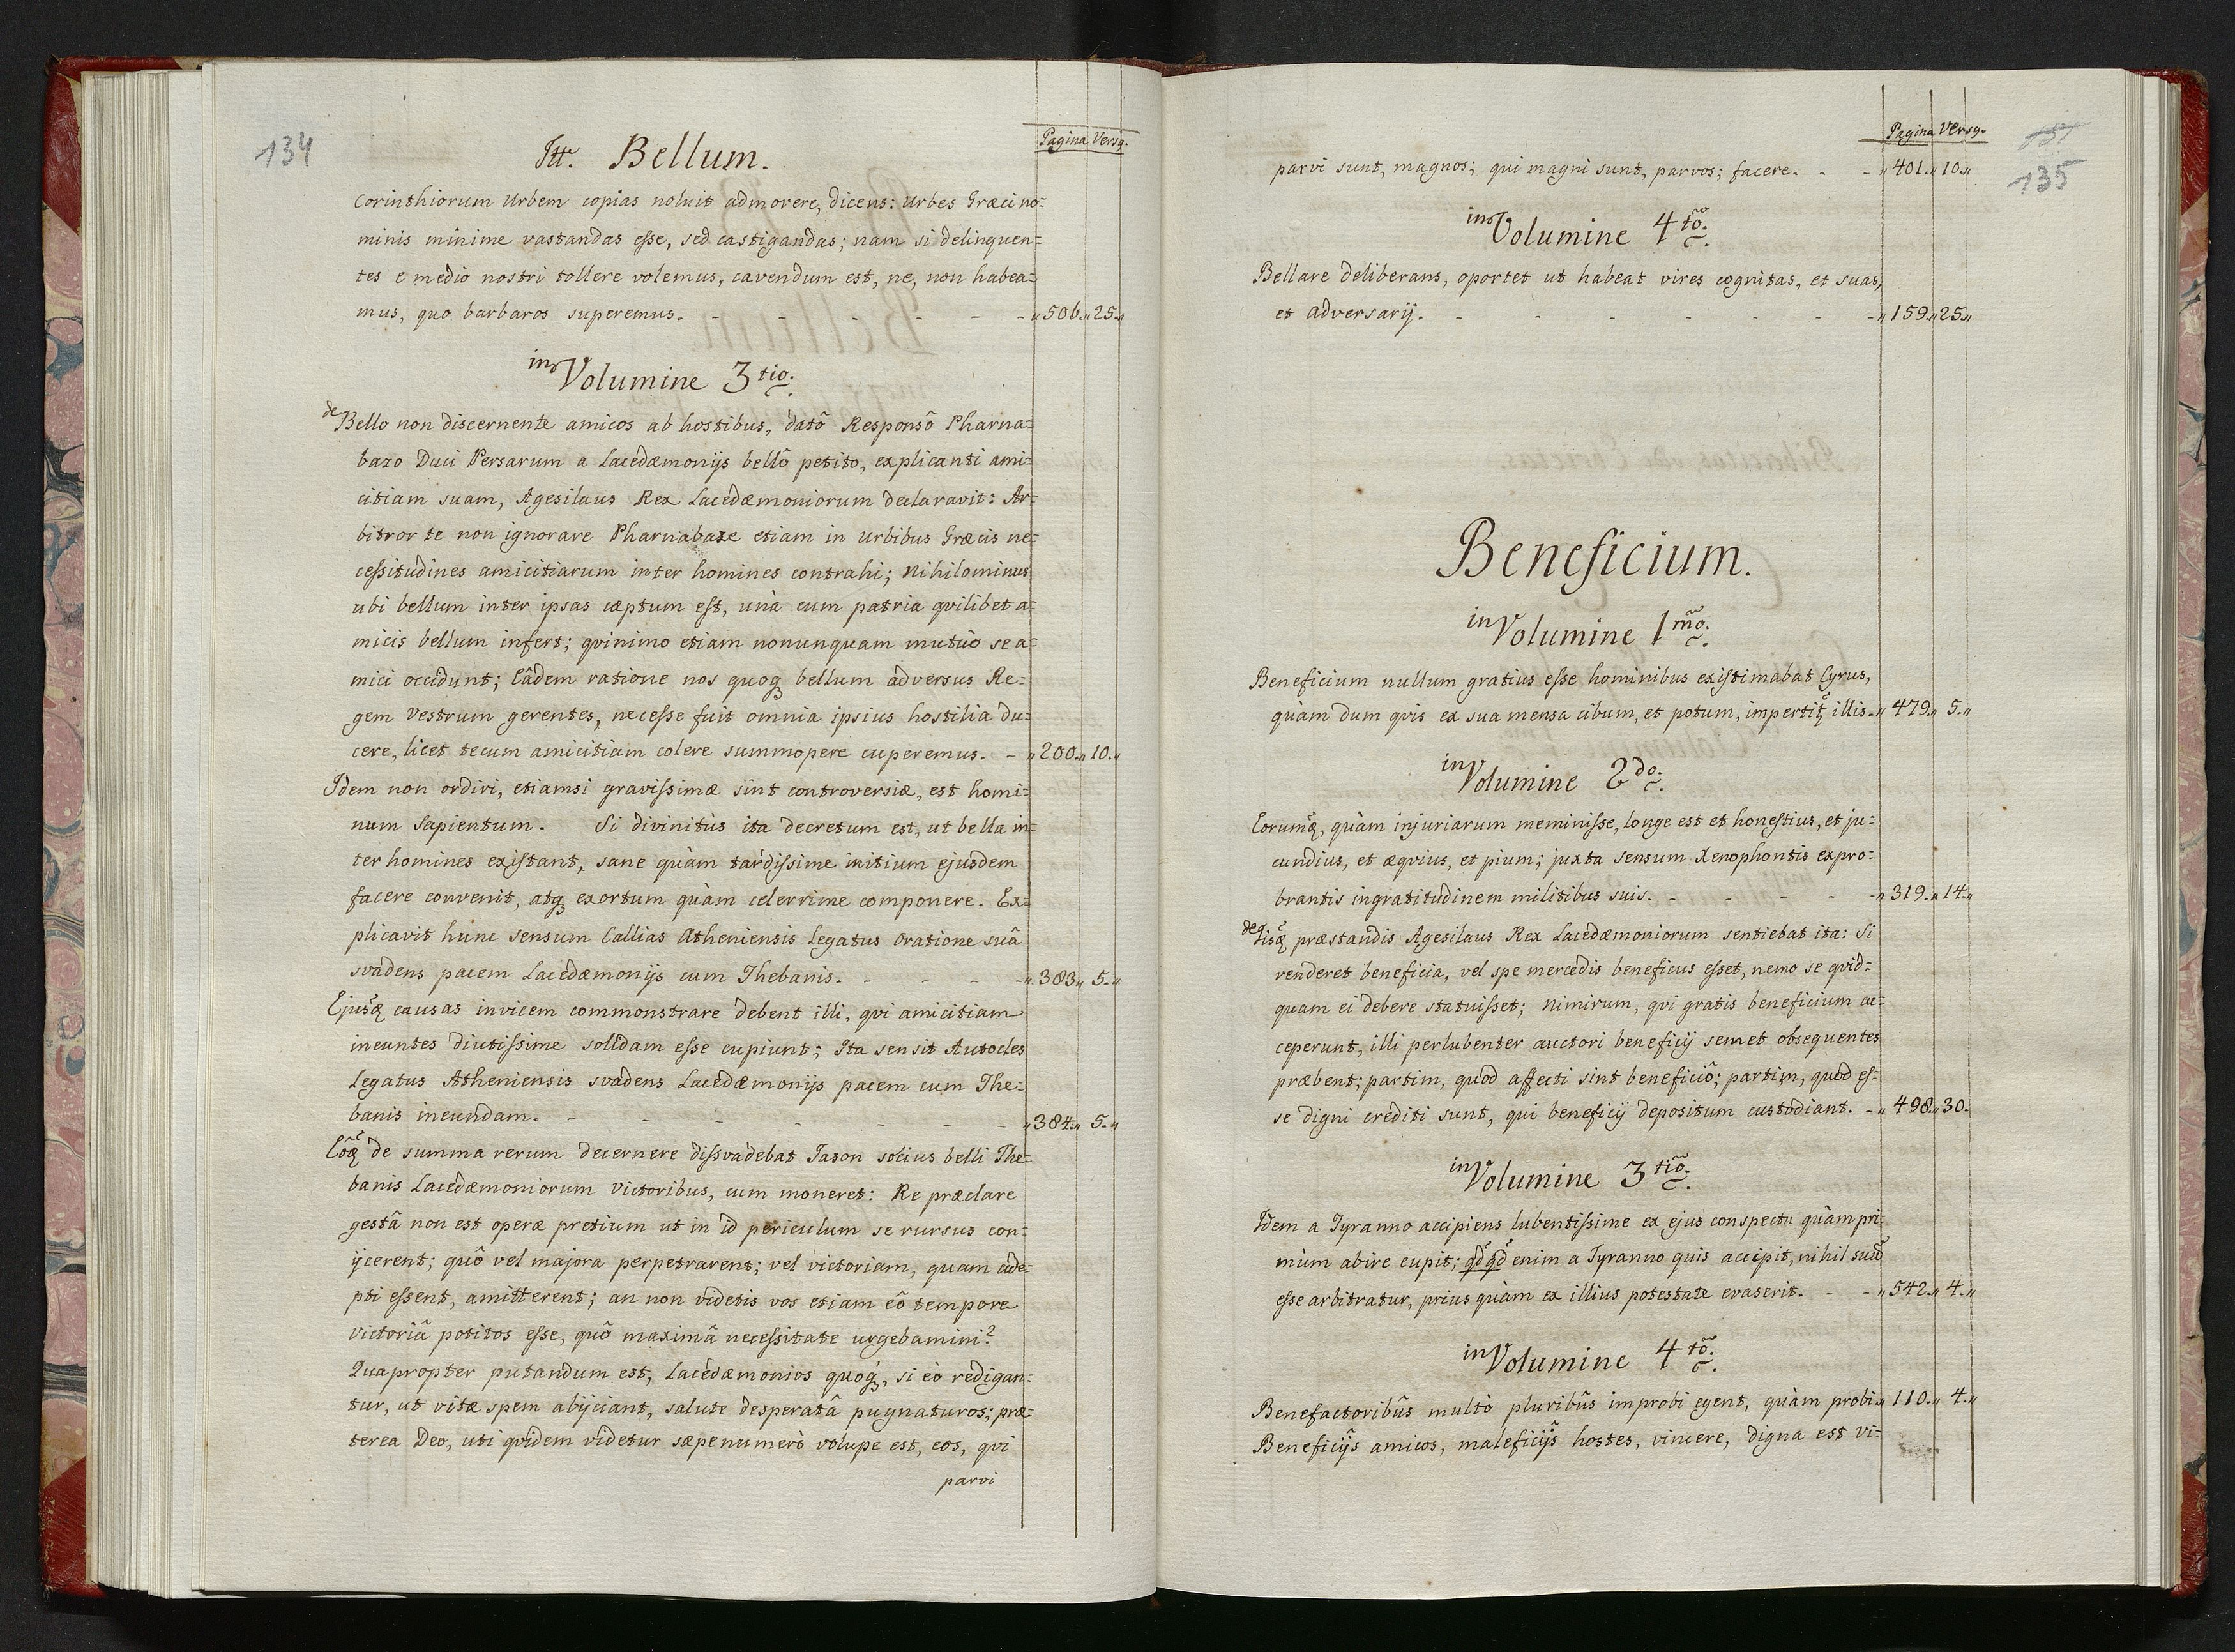 134
Itt. Bellum.
Pagina Versq.
Corinthiorum Urbem copias noluit admovere, dicens: Urbes Græci no=
minis minime vastandas esse, sed castigandas; nam si delinquen=
tes e medio nostri tollere volemus, cavendum est, ne, non habea=
mus, quo barbaros superemus. - - - - - - „506.„25.„
in Volumine 3tio.
de Bello non discernente amicos ab hostibus, datô Responsô Pharna=
bazo Duci Persarum a Lacedæmonijs bellô petito, explicanti ami=
citiam suam, Agesilaus Rex Lacedæmoniorum declaravit: Ar=
bitror te non ignorare Pharnabaze etiam in Urbibus Græcis ne=
cessitudines amicitiarum inter homines contrahi; Nihilominus
ubi bellum inter ipsas cæptum est, unà cum patria qvilibet a=
micis bellum infert; qvinimo etiam nonunquam mutùo se a=
mici occidunt; Eâdem ratione nos quoq bellum adversus Re=
gem Vestrum gerentes, necesse fuit omnia ipsius hostilia du=
cere, licet tecum amicitiam colere summopere cuperemus. - „200.„10.„
Idem non ordiri, etiamsi gravissimæ sint controversiæ, est homi=
num Sapientum. Si divinitùs ita decretum est, ut bella in=
ter homines existant, sane quàm tardissime initium ejusdem
facere convenit, atq exortum quàm celerrime componere. Ex=
plicavit hunc sensum Callias Atheniensis Legatus Oratione suâ
svadens pacem Lacedæmonijs cum Thebanis. - - - - „383„ 5.„
Ejusq causas invicem commonstrare debent illi, qvi amicitiam
ineuntes diutissime solidam esse cupiunt; Ita sensit Autocles
Legatus Atheniensis svadens Lacedæmonijs pacem cum The=
banis ineundam. - - - - - - - „384.„ 5.„
Eôq de summa rerum decernere dissvadebat Jason socius belli The=
banis Lacedæmoniorum Victoribus, cum moneret: Re præclare
gestâ non est operæ pretium ut in id periculum se rursus con=
ijcerent; quô vel majora perpetrarent; vel victoriam, quam ade=
pti essent, amitterent; an non videtis vos etiam eô tempore
Victoriâ potitos esse, quô maximâ necessitate urgebamini?
Quapropter putandum est, Lacedæmonios quoq, si eò redigan=
tur, ut vitæ spem abijciant, salute desperatâ pugnaturos; præ=
terea Deo, uti qvidem videtur sæpenumerò volupe est, eos, qvi
parvi
Pagina Versq.
135
parvi sunt, magnos; qui magni sunt, parvos; facere. - - „401.„10.„
in Volumine 4to.
Bellare deliberans, oportet ut habeat vires cognitas, et suas,
et adversarij. - - - - - - - „159.„25„
Beneficium.
in Volumine 1mo.
Beneficium nullum gratius esse hominibus existimabat Cyrus,
quàm dum qvis ex sua mensa cibum, et potum, impertit illis. „479.„ 5.„
in Volumine 2do.
Eorumq, quàm injuriarum meminisse, longe est et honestius, et ju=
cundius, et æqvius, et pium; juxta sensum Xenophontis expro=
brantis ingratitudinem militibus suis. - - - - - „319.„14.„
de Iisq præstandis Agesilaus Rex Lacedæmoniorum sentiebat ita: Si
venderet beneficia, vel spe mercedis beneficus esset, nemo se qvid=
quam ei debere statuisset; Nimirum, qvi gratis beneficium ac=
ceperunt, illi perlubenter auctori beneficij semet obsequentes
præbent; partim, quod affecti sint beneficiô; partim, quod es=
se digni crediti sunt, qui beneficij depositum custodiant. - „498„30.
in Volumine 3tio.
Idem a Tyranno accipiens lubentissime ex ejus conspectu quàm pri=
mùm abire cupit; qd qd enim a Tyranno quis accipit, nihil suu
esse arbitratur, prius quàm ex illius potestate evaserit. - - „542.„4.„
in Volumine 4to.
Benefactoribûs multò pluribûs improbi egent, quàm probi. „110.„ 4.„
Beneficijs amicos, maleficijs hostes, vincere, digna est vi=